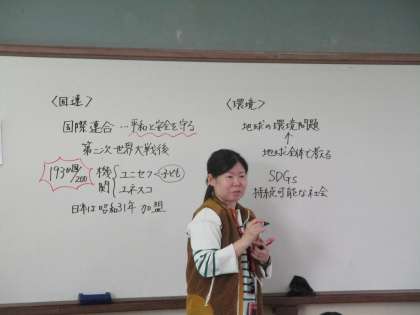 〈国連〉
国際連合…平和と安全を守る
第二次世界大戦後
193か国/200
機関
ユニセフ 子ども
ユネスコ
日本は昭和31年 加盟
〈環境〉
地球の環境問題
↑
地球全体で考える
SDGs
持続可能な社会